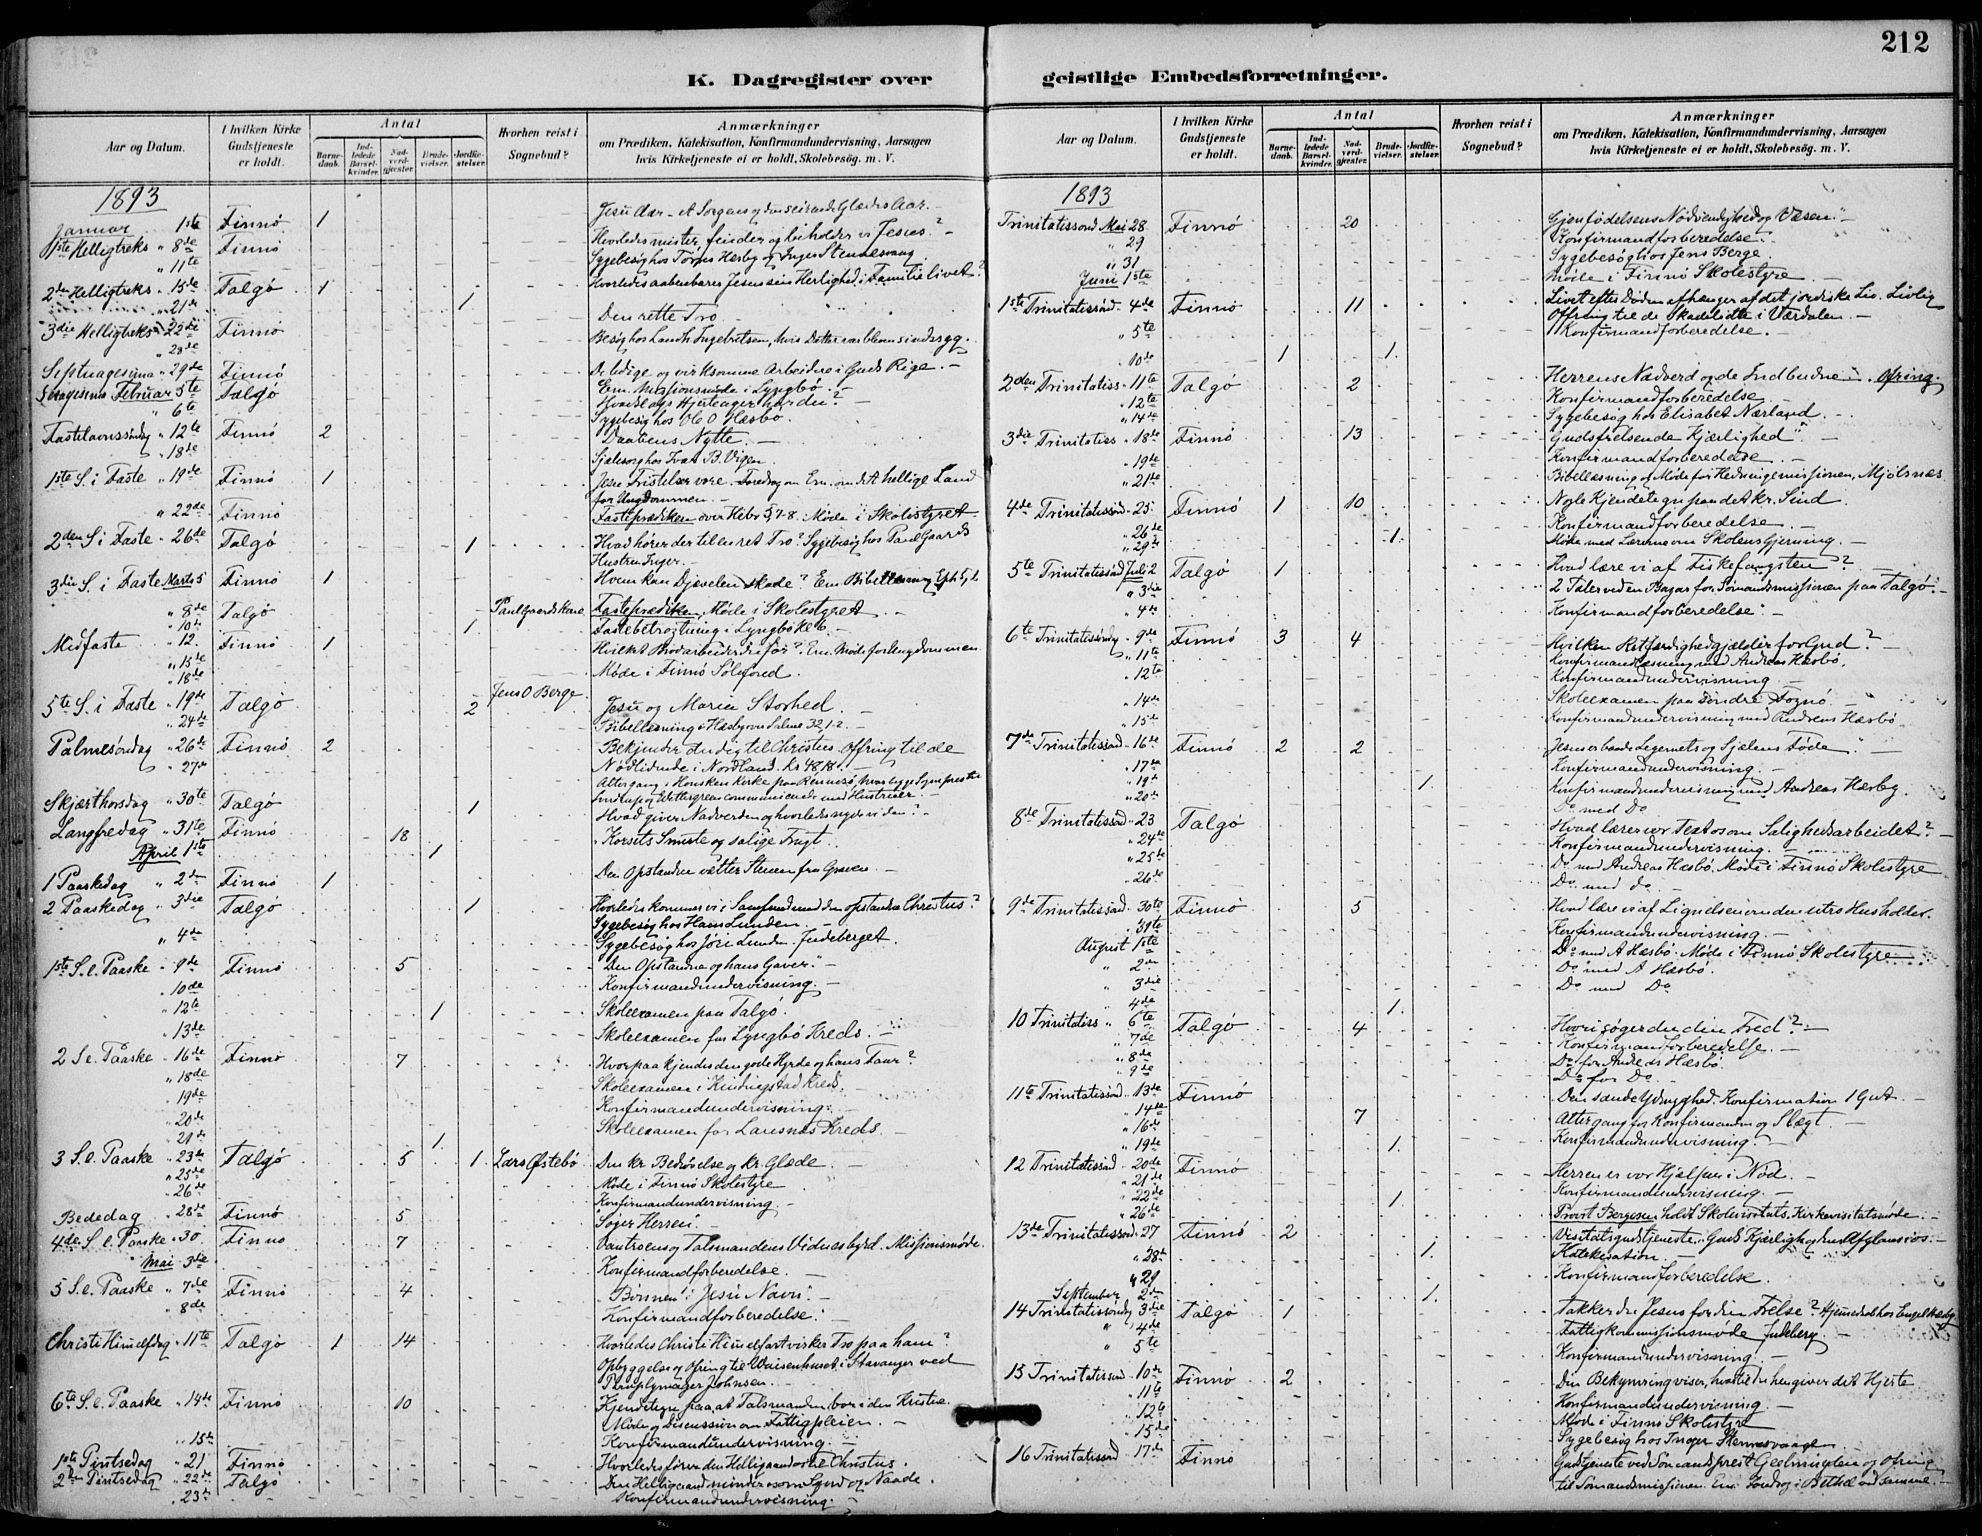 212
K. Dagregister over
Aar og Datum.
I hvilken Kirke Gudstjeneste er holdt.
Antal
Barnedaab.
Indledede Barselkvinder.
Nadverdgjæster.
Brudevielser.
Jordfæstelser.
Hvorhen reist i Sognebud?
Anmærkninger
om Prædiken, Katekisation, Konfirmandundervisning, Aarsagen
hvis Kirketjeneste ei er holdt, Skolebesøg. m. V.
1893
Januar 1ste Finnø 1
1ste Helligtreks „ 8de Finnø
„ 11te Sygebesøg hos
2den Helligtreks „ 15de Talgø 1 Hvorledes aabenbarer Jesus sin Herlighed i Familielivet?
„ 21de 1
3die Helligtreks „ 22de Finnø Den rette Tro
„ 28de
Septuagesima „ 29de Finnø De ledige og virksomme Arbeidere i Guds Rige.
Sexagesima Februar 5te Talgø Em. Missionsmøde i Lyngbø
„ 6te Sygebesøg hos O Hæsbø
Fastelavnssøndag „ 12te Finnø 2 Daabens Nytte.
„ 18de Sjælesorg hos Ivar B. Vigen
1ste S. i Faste „ 19de Finnø 1 Jesu Fristelser vore. Foredrag om Em. om det hellige Land
for Ungdommen.
„ 22de Finnø Fasteprædiken over Hebr 5,7-8. Møde i Skolestyret
2den S i Faste „ 26de Talgø 1 Hvad hører der til en ret Tro? Sygebesøg hos Paul Gaards
Hustru Inger.
3die S. i Faste Marts 5 Finnø 1 Hvem kan Djævelen skade? Em. Bibellæsning Eph 5,1.
„ 8de Talgø Paul Gaards Kone Fasteprædiken, Møde i Skolestyret
„ 10de 1 Fastebetragtning i Lyngbø
Midfaste „ 12. Finnø 1 Em. Møde for Ungdommen
„ 15de Møde i Finnø
„ 18de
5te S. i Faste „ 19de Talgø 2 Jens O Berge Jesu og Maria Storhed.
„ 24de Bibellæsning i Hæsby over Salme 32,1-2.
Palmesøndag „ 26de Finnø 2 Bekjender du dig til Christus. Offring til de
Nødlidende i Nordland. Kr 48,18.
„ 27de Altergang i Hauskens Kirke paa Rennesø, hvor
communicerede med Hustruer.
Skjærthorsdag „ 30te Talgø 1 Hvad giver Nadverden og hvorledes nyde vi den?
Langfredag „ 31te Finnø 18 Korsets Smerte og salige Frugt.
April 1ste 1
1 Paaskedag „ 2den Finnø 1 Den Opstandne vælter Stenen fra Graven
2 Paaskedag „ 3die Talgø 1 Hvorledes kommer vi i Samfund med den opstandne Christus?
Sygebesøg hos Hans Lunden
„ 4de Sygebesøg hos Jøri Lunden. Judeberget.
1ste S. e. Paaske „ 9de Finnø 5 Den Opstandne og hans Gaver.
„ 10de Konfirmandundervisning.
„ 12te 1 Skoleexamen paa Talgø.
„ 13de Skoleexamen for Lyngbø Kreds.
2 S e. Paaske „ 16de Finnø 7 Hvorpaa kjendes den gode Hyrde og hans Faar?
„ 18de Skoleexamen i Kindingstad Kreds.
„ 19de Konfirmandundervisning.
„ 20de Skoleexamen for Lausnæs Kreds.
„ 21de 1
3 S. e. Paaske „ 23de Talgø 5 1 Lars Østebø Den kr. Bedrøvelse og kr. Glæde.
„ 25de Møde i Finnø Skolestyre
„ 26de Konfirmandundervisning
Bededag „ 28de Finnø 5 Søger Herren.
4de S. e. Paaske „ 30. Finnø 7 Vantroens og Talsmandens Vidnesbyrd. Missionsmøde.
Mai 3de Konfirmandforberedelse.
5 S. e. Paaske „ 7de Finnø 4 Bønnen i Jesu Navn.
„ 8de Konfirmandforberedelse.
Christi Himmelfdag „ 11te Talgø 1 14 Hvorledes Christi Himmelfart virker Tro paa ham?
Opbyggelse og Ofring til Waisenhuset i Stavanger ved
Johnsen.
6te S. e. Paaske „ 14de Finnø 10 Kjendetegn paa, at Talsmanden bor i den Kristne.
Møde og Discussion om Fattigpleien.
„ 15te Konfirmandundervisning.
1ste Pintsedag „ 21 Finnø Hvorledes fører den Helligaand os til Christus.
2den Pintsedag „ 22de Talgø Den Helligaand minder os om Synd og Naade.
„ 23de Konfirmandundervisning.
geistlige Embedsforretninger.
Aar og Datum.
I hvilken Kirke Gudstjeneste er holdt.
Antal
Barnedaab.
Indledede Barselkvinder.
Nadverdgjæster.
Brudevielser.
Jordfæstelser.
Hvorhen reist i Sognebud?
Anmærkninger
om Prædiken, Katekisation, Konfirmandundervisning, Aarsagen
hvis Kirketjeneste ei er holdt, Skolebesøg. m. V.
1893
Trinitatissønd Mai 28 Finnø 20 Gjenfødelsens Nødvendighed og Væsen.
„ 29 Konfirmandforberedelse.
„ 31 Sygebesøg hos Jens Berge
Juni 1ste Møde i Finnø Skolestyre
1ste Trinitatissønd „ 4de Finnø 11 Livet efter Døden afhænger af det jordiske Liv.
Offring til de Skadelidte i Værdalen.
„ 5te Konfirmandforberedelse.
„ 10de 1 1
2den Trinitatiss „ 11te Talgø 2 Herrens Nadverd og de Indbudne. Ofring.
„ 12te Konfirmandforberedelse
„ 14de Sygebesøg hos Elisabet Nærland.
3die Trinitatiss „ 18de Finnø 13 Guds frelsende Kjærlighed
„ 19de Konfirmandforberedelse.
„ 21de Bibellæsning og Møde for Hedningemissionen, Mjølsnæs
4de Trinitatissønd „ 25. Finnø 1 10 Nogle Kjendetegn paa det kr. Sind
„ 26de Konfirmandforberedelse.
„ 29de 1 Møde med Lærerne om Skolens Gjerning.
5te Trinitatissønd Juli 2 Talgø 1 Hvad lære vi af Fiskefangsten?
„ 3die 2 Taler ved en Bazar for Sømandsmissionen paa Talgø.
„ 4de Konfirmandforberedelse.
6te Trinitatissøndag „ 9de Finnø 3 4 Hvilken Retfærdighed gjælder for Gud?
„ 11te Konfirmandlæsning med Andreas Hæsbø.
„ 12te Konfirmandundervisning.
„ 14de Skoleexamen paa Søndre Fognø
„ 15de Konfirmandundervisning med Andreas Hæsbø
7de Trinitatissønd „ 16de Finnø 2 2 Jesus er baade Legemets og Sjælens Føde.
„ 17te Konfirmandundervisning.
„ 19de 1 Konfirmandundervisning med Andreas Hæsbø.
„ 20de Do med Do
8de Trinitatissønd „ 23 Talgø Hvad lærer vor Text os om Salighedsarbeidet?
„ 24de Konfirmandundervisning.
„ 25de Do med Andreas Hæsbø. Møde i Finnø Skolestyre
„ 26de Do med do
9de Trinitatissønd „ 30te Finnø 5 Hvad lære vi af Lignelsen om den utro Husholder.
„ 31te Konfirmandundervisning.
August 1ste Do med A Hæsbø. Møde i Finnø Skolestyre
„ 2den Do med A Hæsbø.
„ 3die Do med Do
„ 4de 1
10 Trinitatiss „ 6te Talgø 4 Hvori søger du din Fred?
„ 7de Konfirmandforberedelse.
„ 8de Do for Andreas Hæsbø.
„ 9de Do for Do
11te Trinitatissønd „ 13de Finnø Den sande Ydmyghed. Konfirmation 1 Gut.
„ 14de 7 Altergang for Konfirmanden og Slægt.
„ 16de Konfirmandundervisning.
„ 19de 1
12 Trinitatissønd „ 20de Finnø Herren er vor Hjælper i Nød.
„ 21de Konfirmandundervisning.
„ 22de 1
„ 26de Provst Bergesen holdt Skolevisitats, Kirkevisitatsmøde.
13de Trinitatissønd „ 27 Finnø 2 Visitatsgudstjeneste. Guds Kjærlighed
„ 28de 1 Katekesation.
„ 29 Konfirmandforberedelse.
September 2den 1
14 Trinitatissøndag 3die Talgø 1 Takker du Jesus for din Frelse?
„ 4de Fattigkommissionsmøde Judeberg.
„ 5te Konfirmandundervisning.
15 Trinitatissønd „ 10de Finnø 2 Din Bekymring viser, hvortil du hengiver det Hjerte
„ 11te Konfirmandundervisning.
„ 12te Møde i Finnø Skolestyre
„ 15de Sygebesøg hos Inger Stennesvaage
16 Trinitatissønd „ 17de Finnø Gudstjeneste ved Sømandsprest og Ofring
til Sømandsmissionen. Em. Foredrag i Bethel